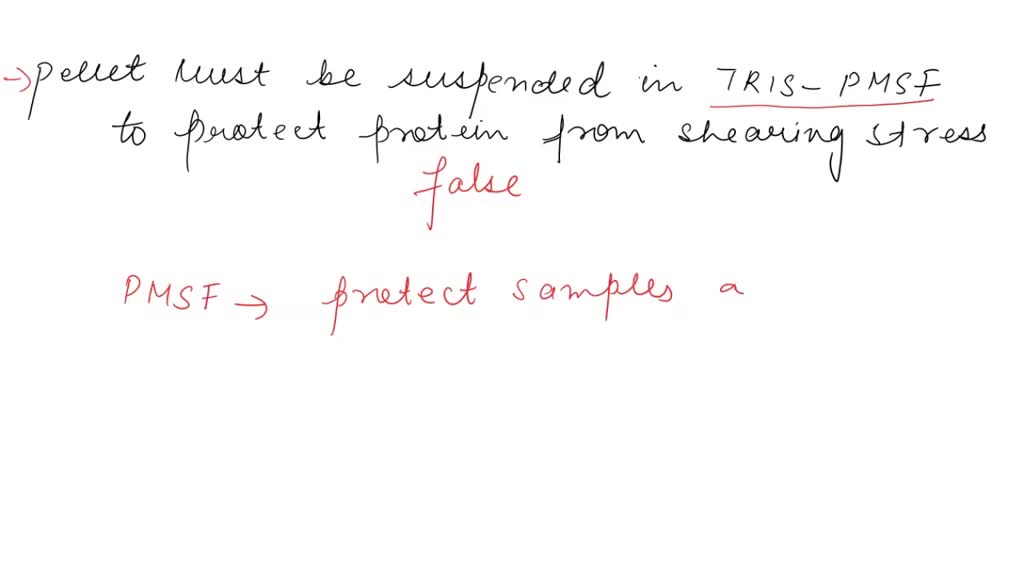 → Pellet must be suspended in TRIS - PMSF
to protect protein from shearing stress
false
PMSF → protect samples a